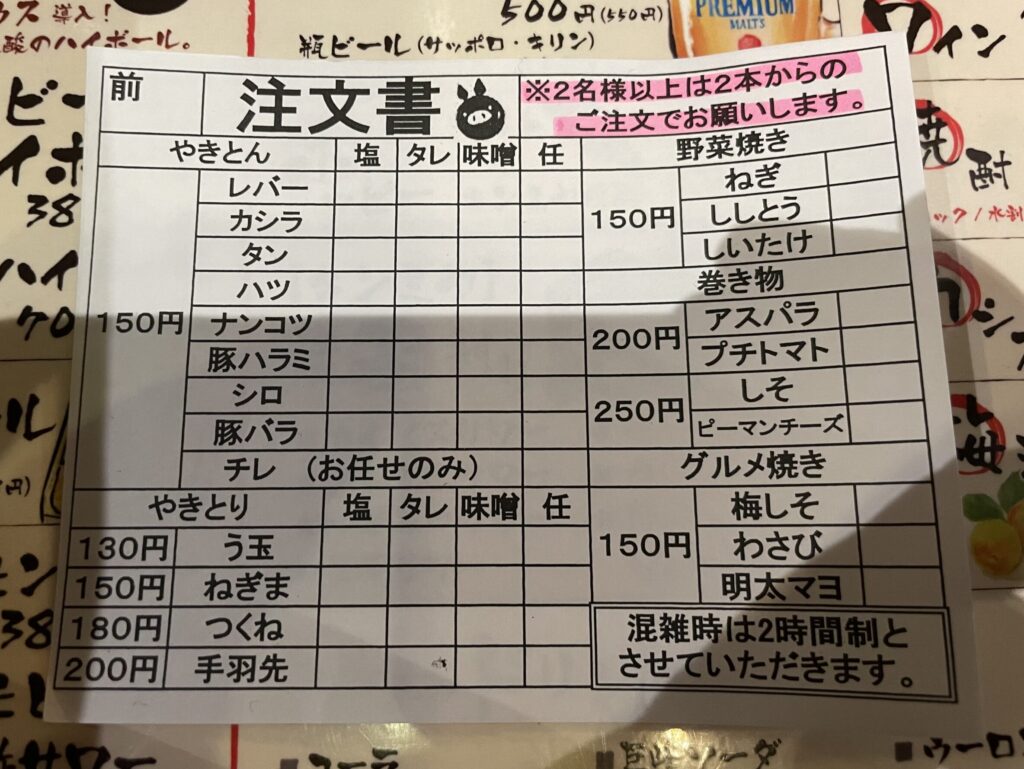 ウス 導入!
酸のハイボール。
500円(550円)
瓶ビール(サッポロ・キリン)
PREMIUM
MALT'S
ワイン
前
注文書
※2名様以上は2本からの
ご注文でお願いします。
やきとん 塩 タレ 味噌 任
150円
レバー
カシラ
タン
ハツ
ナンコツ
豚ハラミ
シロ
豚バラ
チレ (お任せのみ)
やきとり 塩 タレ 味噌 任
130円 う玉
150円 ねぎま
180円 つくね
200円 手羽先
野菜焼き
150円
ねぎ
ししとう
しいたけ
巻き物
200円
アスパラ
プチトマト
250円
しそ
ピーマンチーズ
グルメ焼き
150円
梅しそ
わさび
明太マヨ
混雑時は2時間制と
させていただきます。
ビー
イボ
38
ハイ
ール
円)
38
サワー
焼酎
ック/水割
コーラ
ソーダ
ウーロ